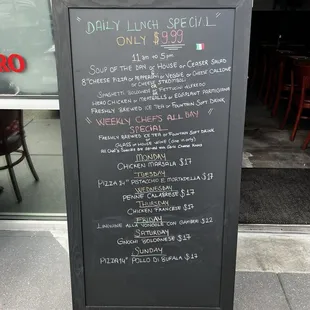 "DAILY LUNCH SPECIAL"
ONLY $9.99
11 am to 5 pm
SOUP OF THE DAY OR HOUSE OR CEASER SALAD
8" CHEESE PIZZA OR PEPPERONI OR VEGGIE OR CHEESE CALZONE
OR CHEESE STROMBOLI
SPAGHETTI BOLOGNESE OR FETTUCINE ALFREDO
HERO CHICKEN OR MEATBALLS OR EGGPLANT PARMIGIANA
FRESHLY BREWED ICE TEA OR FOUNTAIN SOFT DRINK
"WEEKLY CHEFS ALL DAY
SPECIAL"
FRESHLY BREWED ICE TEA OR FOUNTAIN SOFT DRINK
OR
GLASS OF HOUSE WINE (one only)
MONDAY
CHICKEN MARSALA $17
TUESDAY
PIZZA 14" PISTACCHIO E MORTADELLA $17
WEDNESDAY
PENNE CALABRESE $17
THURSDAY
CHICKEN FRANCESE $17
FRIDAY
LINGUINE ALLA VONGOLE CON GAMBERI $22
SATURDAY
GNOCHI BOLOGNESE $17
SUNDAY
PIZZA 14" POLLO DI BUFALA $17